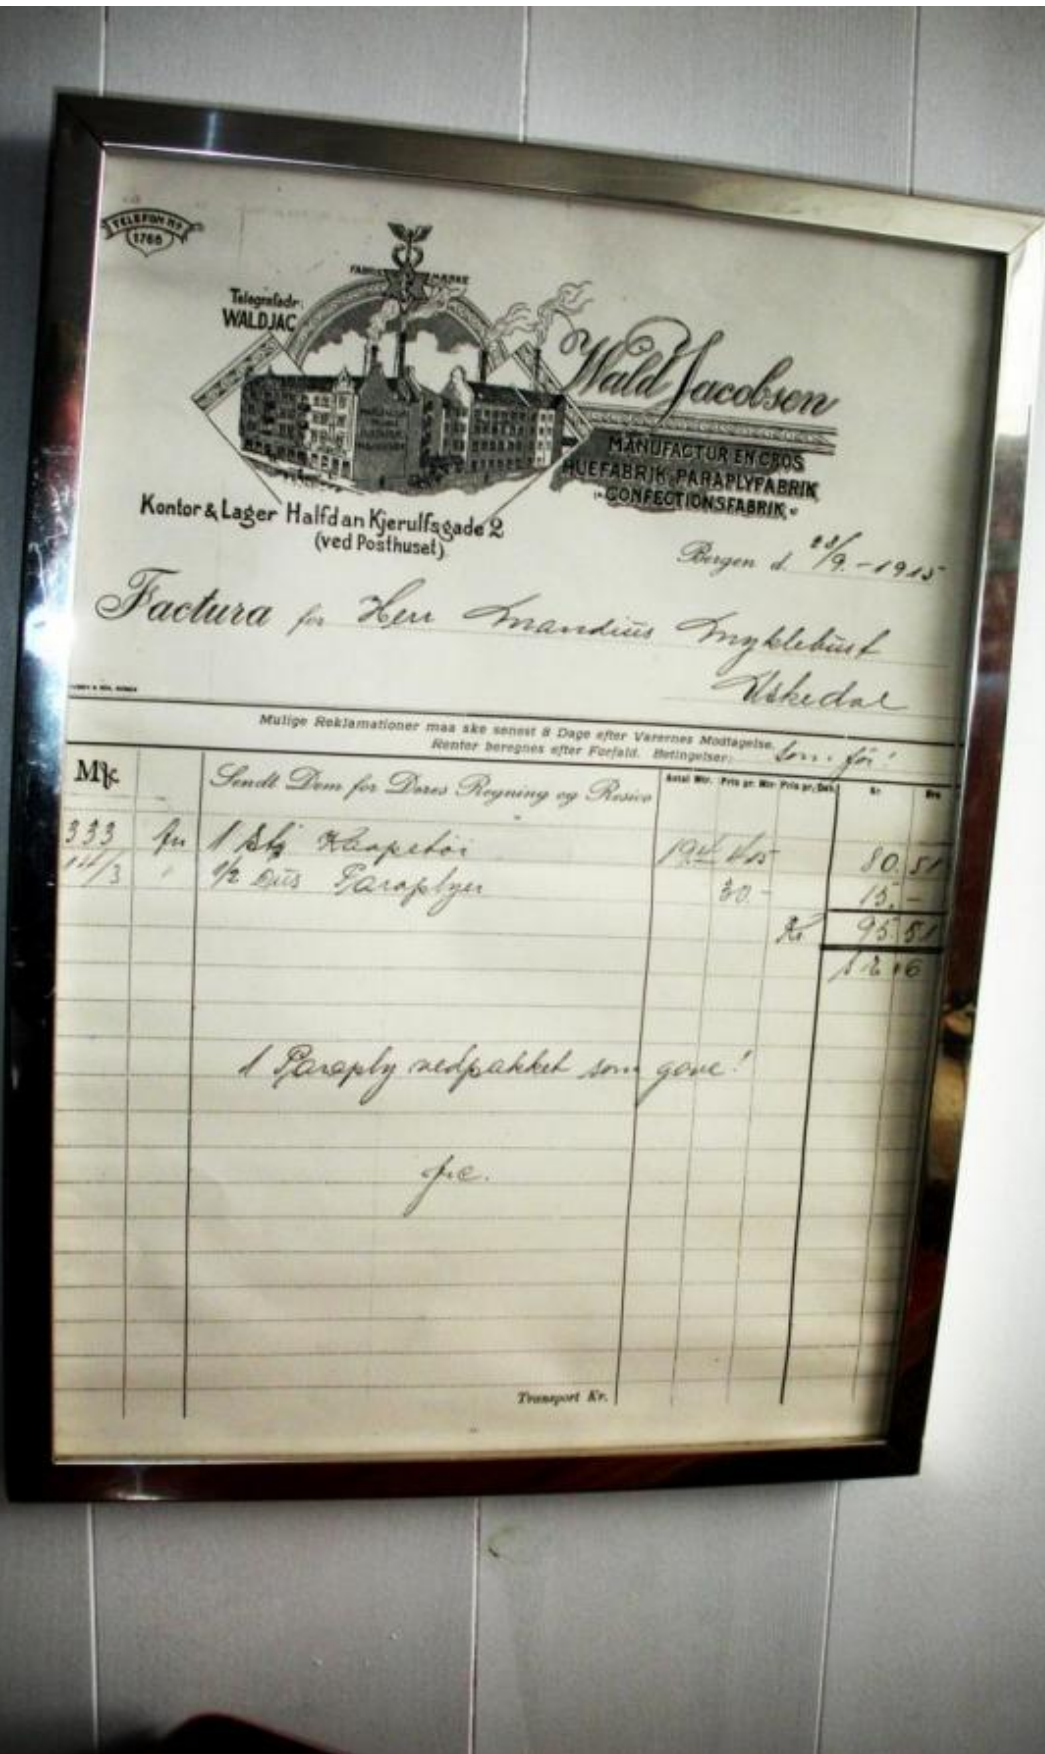 TELEFON No
1766
FABRIKS MÆRKE
Telegrafadr:
WALDJAC
Wald Jacobsen
MANUFACTUR EN GROS
HUEFABRIK & PARAPLYFABRIK
CONFECTIONSFABRIK
Kontor & Lager Halfdan Kjerulfsgade 2
(ved Posthuset)
Bergen d. 28/9.-1915
Factura for Herr Mandius Myklebust
Uskedal
Mulige Reklamationer maa ske senest 8 Dage efter Varernes Modtagelse.
Renter beregnes efter Forfald. Betingelser: som før!
Mk. Sendt Dem for Deres Regning og Risico Antal Mtr. Pris pr. Mtr. Pris pr. Dus. Kr. Øre
333 1 Stk Kaapetøi 19 4 15 80. 51
14/3 " 1/2 Dus Paraplyer 30.- 15.-
Kr 95 51
1 Paraply nedpakket som gave!
Transport Kr.